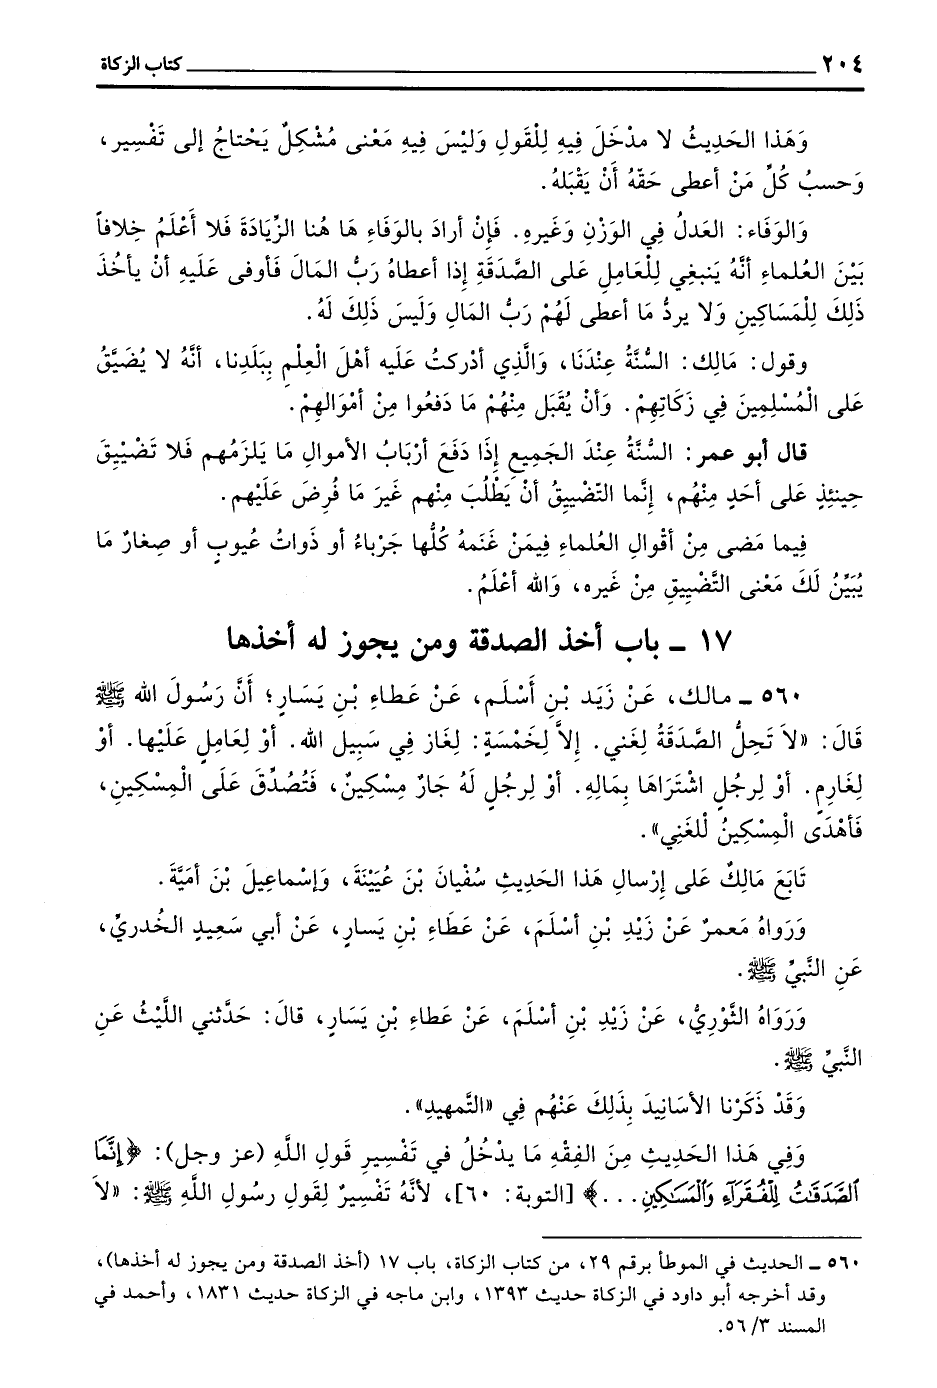 ٢٠٤ كتاب الزكاة
وَهَذا الحَدِيثُ لا مدْخَلَ فِيهِ لِلْقَولِ وَلَيْسَ فِيهِ مَعْنى مُشْكِلٌ يَحْتاجُ إلى تَفْسِيرٍ،
وَحسبُ كُلِّ مَنْ أعطى حَقّهُ أَنْ يَقْبَلهُ.
وَالوَفَاء: العَدلُ فِي الوَزْنِ وَغَيرِهِ. فَإنْ أرادَ بالوَفَاءِ هَا هُنا الزِّيَادَةَ فَلا أَعْلَمُ خِلافاً
بَيْنَ العُلماءِ أنَّهُ يَنبغِي لِلْعَامِلِ عَلى الصَّدَقَةِ إذا أعطاهُ رَبُّ المَالَ فَأوفى عَلَيهِ أنْ يأخُذَ
ذَلِكَ لِلْمَسَاكِينِ وَلا يردُّ مَا أعطى لَهُمْ رَبُّ المَالِ وَلَيسَ ذَلِكَ لَهُ.
وقول: مَالِك: السُّنَّةُ عِنْدَنَا، وَالَّذِي أدْركتُ عَلَيه أهْلَ الْعِلْمِ بِبَلَدِنا، أنَّهُ لا يُضَيَّقُ
عَلى الْمُسْلِمِينَ فِي زَكَاتِهِمْ. وَأنْ يُقَبَل مِنْهُمْ مَا دَفعُوا مِنْ أمْوَالهِمْ.
قال أبو عمر: السُّنَّةُ عِنْدَ الجَمِيعِ إِذَا دَفَعَ أرْبَابُ الأموالِ مَا يَلزَمُهم فَلا تَضْيِيقَ
حِينئِذٍ عَلى أحَدٍ مِنْهُم، إنَّما التّضْيِيقُ أنْ يَطْلُبَ مِنْهم غَيرَ مَا فُرِضَ عَلَيْهم.
فِيما مَضى مِنْ أقْوالِ العُلماءِ فِيمَنْ غَنَمهُ كُلُّها جَرْباءُ أو ذَواتُ عُيوبٍ أو صِغارٌ مَا
يُبَيِّنُ لَكَ مَعْنى التَّضْيِيقِ مِنْ غَيره، وَالله أعْلَمُ.
١٧ - باب أخذ الصدقة ومن يجوز له أخذها
٥٦٠ - مالك، عَنْ زَيَد بْنِ أَسْلَم، عَنْ عَطاءِ بْنِ يَسَارٍ؛ أنَّ رَسُولَ الله ﷺ
قَالَ: «لاَ تَحِلُّ الصَّدَقَةُ لِغَني. إلاَّ لِخَمْسَةٍ: لِغَاز فِي سَبِيل الله. أوْ لِعَامِلٍ عَلَيْها. أوْ
لِغَارِمٍ. أوْ لِرجُلٍ اشْتَرَاهَا بِمَالِهِ. أوْ لِرجُلٍ لَهُ جَارٌ مِسْكِينٌ، فَتُصُدِّقَ عَلَى الْمِسْكِينِ،
فَأهْدَى الْمِسْكِينُ لْلغَنِي».
تَابَعَ مَالِكٌ عَلى إرْسالِ هَذا الحَدِيثِ سُفْيانَ بْنَ عُيَيْنَةَ، وَإسْماعِيلَ بْنَ أمَيَّةَ.
وَرَواهُ مَعمرٌ عَنْ زَيْدِ بْنِ أسْلَمَ، عَنْ عَطَاءِ بْنِ يَسارٍ، عَنْ أبي سَعِيدٍ الخُدريِّ،
عَنِ النَّبيِّ ﷺ.
وَرَوَاهُ الثَّوْرِيُّ، عَنْ زَيْدِ بْنِ أسْلَمَ، عَنْ عَطاءِ بْنِ يَسَارٍ، قالَ: حَدَّثني اللَّيْثُ عَنِ
النَّبيِّ ﷺ.
وَقَدْ ذَكَرْنا الأسَانِيدَ بِذَلِكَ عَنْهُم فِي «التَّمهِيدِ».
وَفِي هَذا الحَدِيثِ مِنَ الفِقْهِ مَا يدْخُلُ في تَفْسِيرِ قَولِ اللَّهِ (عز وجل): ﴿إِنَّمَا
ٱلصَّدَقَٰتُ لِلْفُقَرَآءِ وَٱلْمَسَٰكِينِ...﴾ [التوبة: ٦٠]، لأنَّهُ تَفْسِيرٌ لِقَولِ رسُولِ اللَّهِ ﷺ: «لاَ
٥٦٠ - الحديث في الموطأ برقم ٢٩، من كتاب الزكاة، باب ١٧ (أخذ الصدقة ومن يجوز له أخذها)،
وقد أخرجه أبو داود في الزكاة حديث ١٣٩٣، وابن ماجه في الزكاة حديث ١٨٣١، وأحمد في
المسند ٣/ ٥٦.